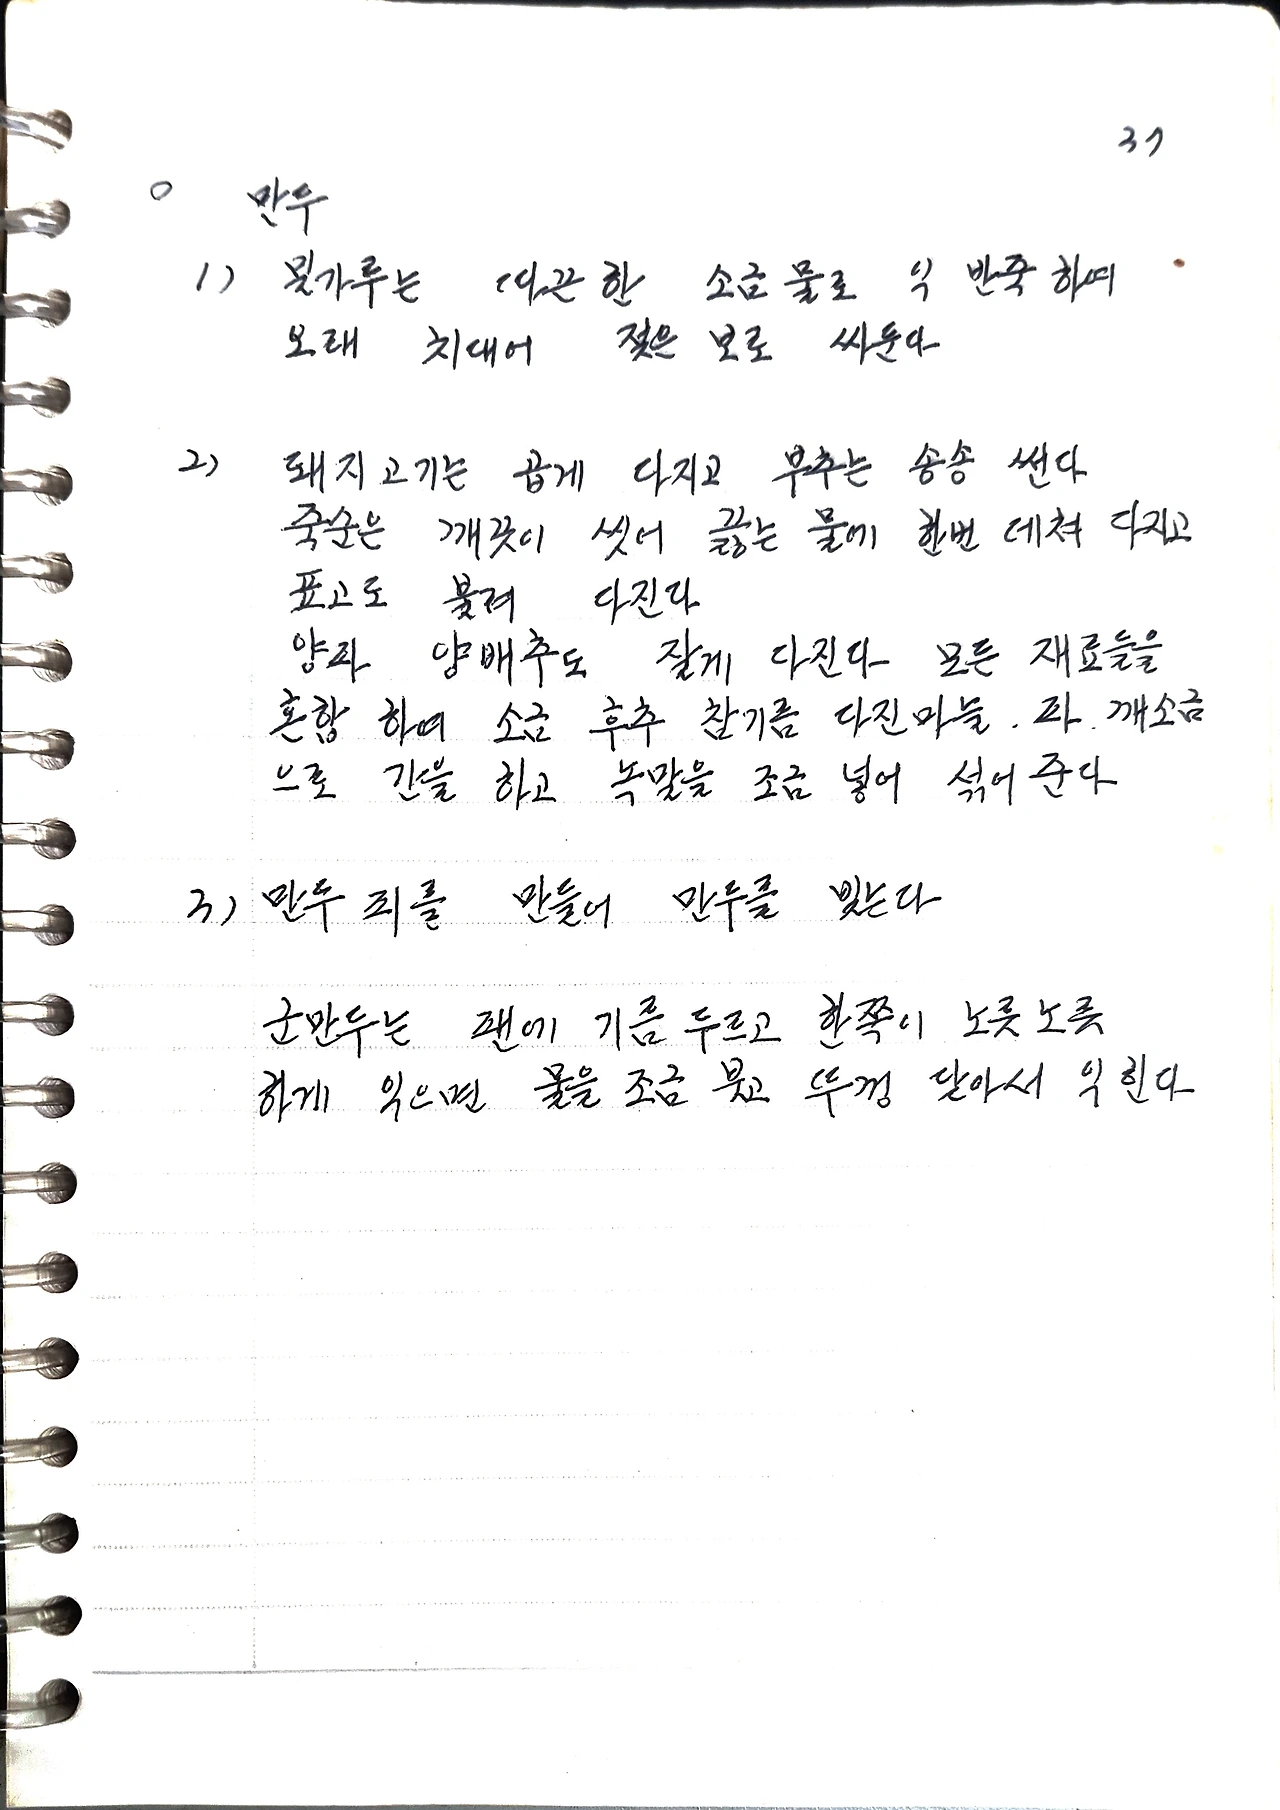 37
○ 만두
1) 밀가루는 따끈한 소금물로 익반죽하여
오래 치대어 젖은 보로 싸둔다
2) 돼지고기는 곱게 다지고 부추는 송송 썬다
죽순은 깨끗이 씻어 끓는 물에 한번 데쳐 다지고
표고도 불려 다진다
양파 양배추도 잘게 다진다 모든 재료들을
혼합 하여 소금 후추 참기름 다진마늘. 파. 깨소금
으로 간을 하고 녹말을 조금 넣어 섞어준다
3) 만두피를 만들어 만두를 빚는다
군만두는 팬에 기름 두르고 한쪽이 노릇노릇
하게 익으면 물을 조금 붓고 뚜껑 닫아서 익힌다